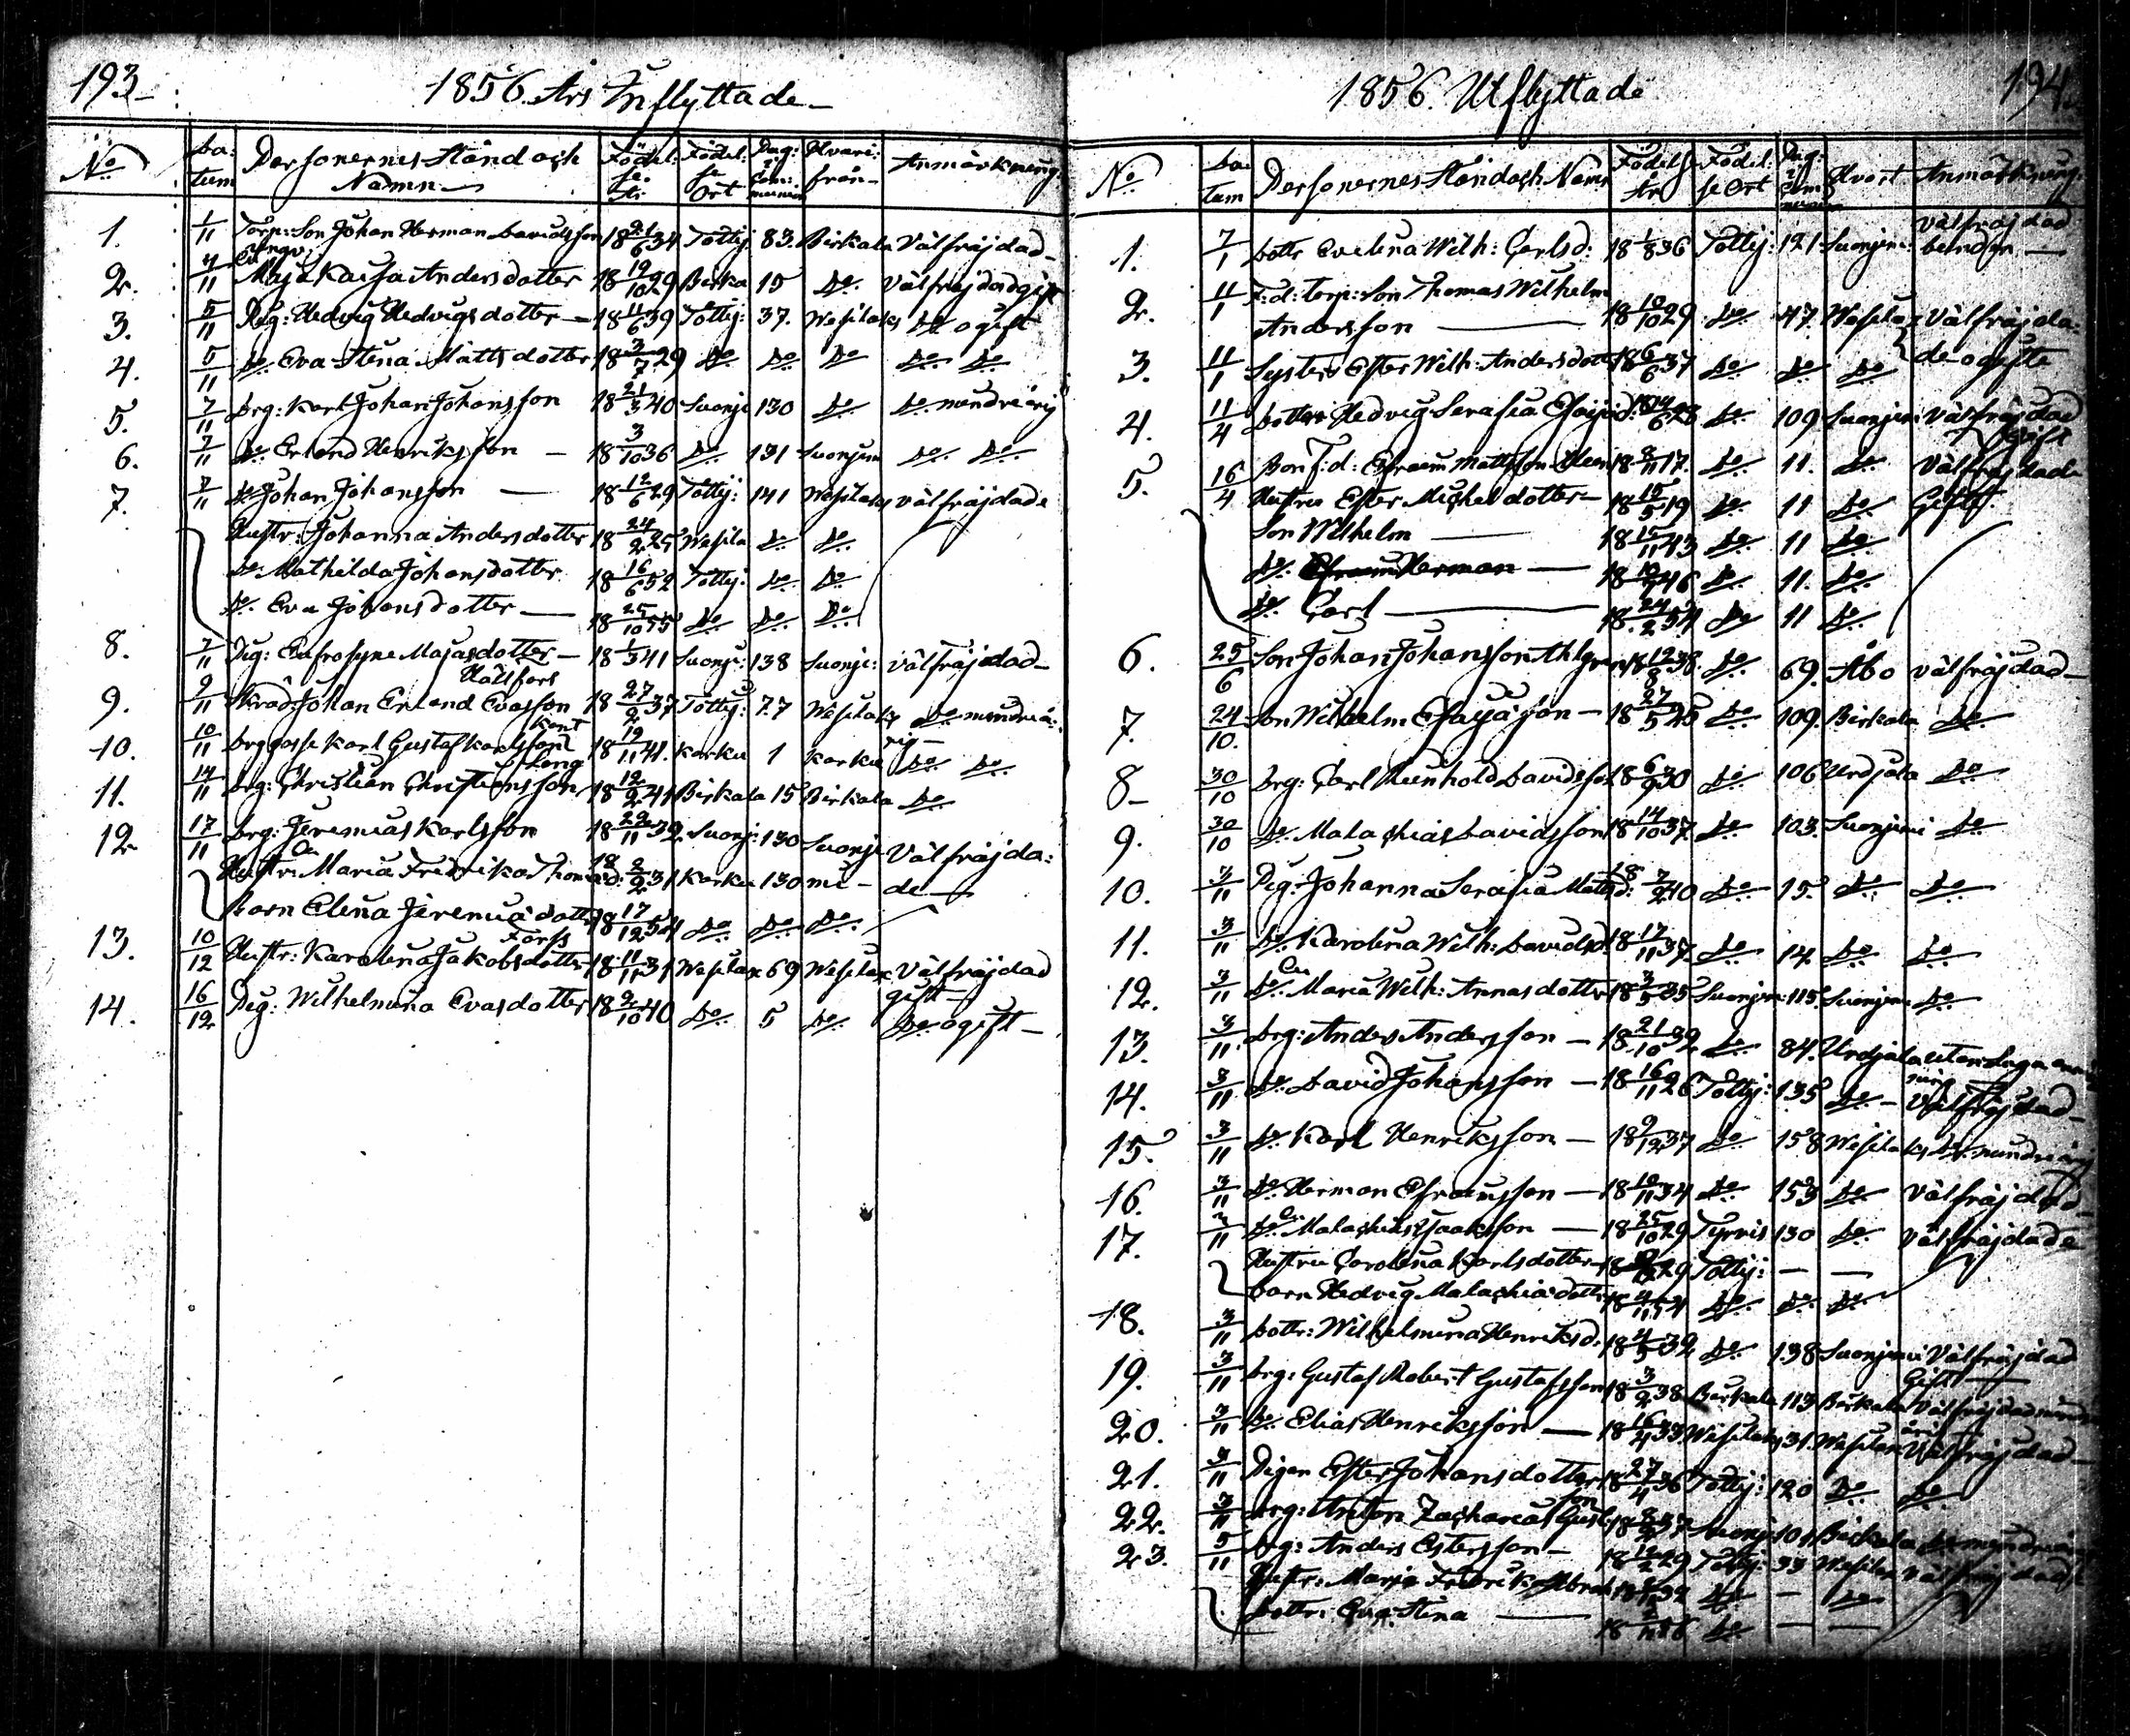 193
1856 Års Inflyttade
No Datum Personernes Stånd och Namn Födelse År Födelse Ort Pag: i Communion Hvarifrån Anmärkning
1. 1/11 Torp: Son Johan Herman Davidsson 18 21/6 34 Tottij: 83. Birkala Välfräjdad
2. 4/11 Maja Kaisa Andersdotter 18 19/10 29 Birka 15 Do Välfräjdad gift
3. 5/11 Pig: Hedvig Hedvigsdotter 18 11/6 39 Tottij: 37. Wesilaks Do ogift
4. 5/11 Do Eva Stina Mattsdotter 18 3/7 29 Do Do Do Do Do
5. 7/11 Drg: Karl Johan Johansson 18 21/3 40 Suonje 130 Do Do mindreårig
6. 7/11 Do Erland Henriksson 18 3/10 36 Do 131 Suonjem Do Do
7. 7/11 Do Johan Johansson 18 12/6 29 Tottij: 141 Wesilaks välfräjdade
Hustr: Johanna Andersdotter 18 24/2 25 Wesila Do Do
Do Mathilda Johansdotter 18 16/6 52 Tottij: Do Do
Do Eva Johansdotter 18 25/10 55 Do Do Do
8. 7/11 Pig: Eufrosyne Majasdotter 18 1/3 41 Suonje: 138 Suonje: välfräjdad
9. 9/11 Skräd Johan Erland Evasson 18 27/2 37 Tottij: 77 Wesilaks Do mindreårig
10. 10/11 Drg gosse Karl Gustaf Karlsson 18 19/11 41. Karku 1 Karku Do Do
11. 14/11 Drg: Christian Christiansson Long 18 12/2 41 Birkala 15 Birkala Do
12. 17/11 Drg: Jeremias Karlsson 18 22/11 32. Suonj: 130 Suonje Välfräjda:
Hustr: Maria Fredrika Thomasd: 18 2/2 31 Karku 130 mi- de
Barn Elena Jeremiædotter 18 17/12 54 Do Do Do
13. 10/12 Hustr: Karolina Jakobsdotter Forss 18 11/11 31 Wesilax 69 Wesilax Välfräjdad gift
14. 16/12 Pig: Wilhelmina Evasdotter 18 2/10 40 Do 5 Do Do ogift
194
1856. Utflyttade
No Datum Personernes Stånd och Namn Födelse År Födelse Ort Pag: i Communion Hvart Anmärkning
1. 7/1 Dottr Evelina Wilh: Carlsd: 18 1/8 36 Tottij: 121 Suonjem: välfräjdad
2. 11/1 F:d: torp: Son Thomas Wilhelm
Andersson 18 10/10 29 Do 47. Wesilax Välfräjda:
3. 11/1 Syster Ester Wilh: Andersdotter 18 6/6 37 Do Do Do de ogifte
4. 11/4 Dottr: Hedvig Serafia Esaijæd: 18 14/6 28 Do 109 Suonjemi Välfräjdad gift
5. 16/4 Bon F:d: Efraim Mattsson 18 2/11 17. Do 11. Do Välfräjdade
Hustru Ester Michelsdotter 18 15/5 19 Do 11 Do Gifte
Son Wilhelm 18 15/11 43 Do 11 Do
Do Herman 18 10/7 46 Do 11. Do
Do Carl 18 24/2 54 Do 11 Do
6. 25/6 Son Johan Johansson Ahlgren 18 12/8 38. Do 69. Åbo välfräjdad
7. 24/10 Son Wilhelm Esajæson 18 27/5 25 Do 109. Birkala Do
8 30/10 Drg: Carl Reinhold Davidsson 18 6/9 30 Do 106 Urdjala Do
9. 30/10 Do Malachias Davidsson 18 14/10 37. Do 103. Suonjemi Do
10. 3/11 Pig: Johanna Serafia Mattsd: 18 7/2 40 Do 15. Do Do
11. 3/11 Do Karolina Wilh: Davidsd: 18 17/11 37. Do 14 Do Do
12. 3/11 Do Maria Wilh: Annasdotter 18 3/5 35 Suonjem: 115. Suonjem Do
13. 3/11 Drg: Anders Andersson 18 21/10 32 Do 84. Urdjala utan Laga
14. 3/11 Do David Johansson 18 16/11 26 Tottij: 135 Do Välfräjdad
15. 3/11 Do Karl Henriksson 18 9/12 37 Do 158 Wesilaks Do mindreårig
16. 3/11 Do Herman Efraimsson 18 10/11 34 Do 153 Do Välfräjdad
17. 3/11 Do Malachias Isaaksson 18 25/10 29 Tyrvis 130 Do välfräjdade
Hustru Carolina Karlsdotter 29 Tottij: — —
Barn Hedvig Malachiædotter 18 4/11 54 Do Do Do
18. 3/11 Dottr: Wilhelmina Henriksd: 18 4/5 32 Do 138 Suonjemi Välfräjdad Gift
19. 3/11 Drg: Gustaf Robert Gustafsson 18 3/2 38 Birkala 113 Birkala Välfräjdad
20. 3/11 Do Elias Henriksson 18 16/4 33 Wesilaks 31. Wesilax Välfräjdad
21. 3/11 Pigan Ester Johansdotter 18 27/4 36 Tottij: 120 Do Do
22. 3/11 Drg: Anton Zacharias Gust:son 37 Suonj 101 Birkala Do mindreårig
23. 5/11 Drg: Anders Estersson 18 12/2 29 Tottij: 33 Wesilax välfräjdade
Hustr: Maria Fredrik: Abrah 32 Do — Do
Dottr: Eva Stina 56 Do — —